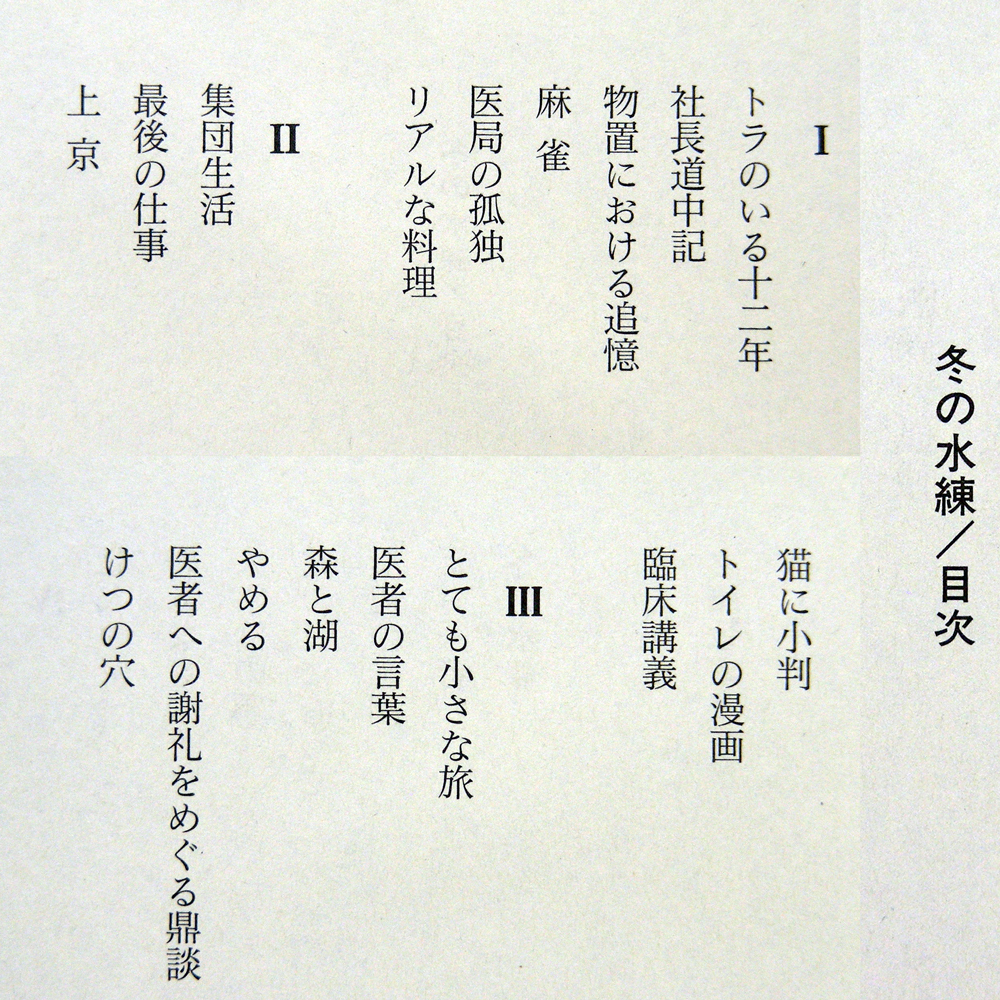 冬の水練/目次
I
トラのいる十二年
社長道中記
物置における追憶
麻雀
医局の孤独
リアルな料理
II
集団生活
最後の仕事
上京
猫に小判
トイレの漫画
臨床講義
III
とても小さな旅
医者の言葉
森と湖
やめる
医者への謝礼をめぐる鼎談
けつの穴